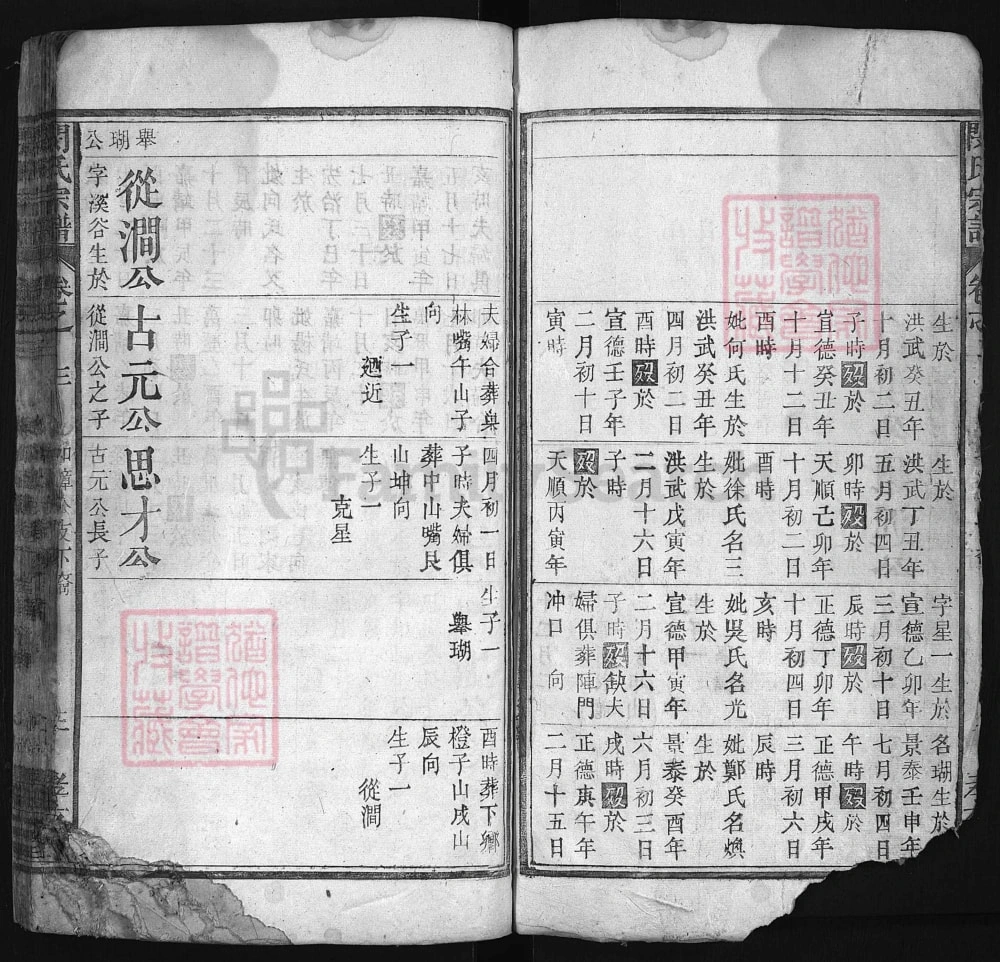 生於
洪武癸丑年
十月初二日
子時歿於
宣德癸丑年
十月十二日
酉時
妣何氏生於
洪武癸丑年
四月初二日
酉時歿於
宣德壬子年
二月初十日
寅時
生於
洪武丁丑年
五月初四日
卯時歿於
天順己卯年
十月初二日
酉時
妣徐氏名三
生於
洪武戊寅年
二月十六日
子時
歿於
天順丙寅年
字星一生於
宣德乙卯年
三月初十日
辰時歿於
正德丁卯年
十月初四日
亥時
妣吳氏名光
生於
宣德甲寅年
二月十六日
子時歿缺夫
婦俱葬陣門
冲口 向
名瑚生於
景泰壬申年
七月初四日
午時歿於
正德甲戌年
三月初六日
辰時
妣鄭氏名煥
生於
景泰癸酉年
六月初三日
戌時歿於
正德庚午年
二月十五日
夫婦合葬與
林嘴午山子
向
生子一
廻近
四月初一日
子時夫婦俱
葬中山嘴艮
山坤向
生子一
克星
生子一
舉瑚
酉時葬下鄉
橙子山戌山
辰向
生子一
從澗
舉瑚公
從澗公
字溪谷生於
古元公
從澗公之子
思才公
古元公長子
氏宗譜
卷之